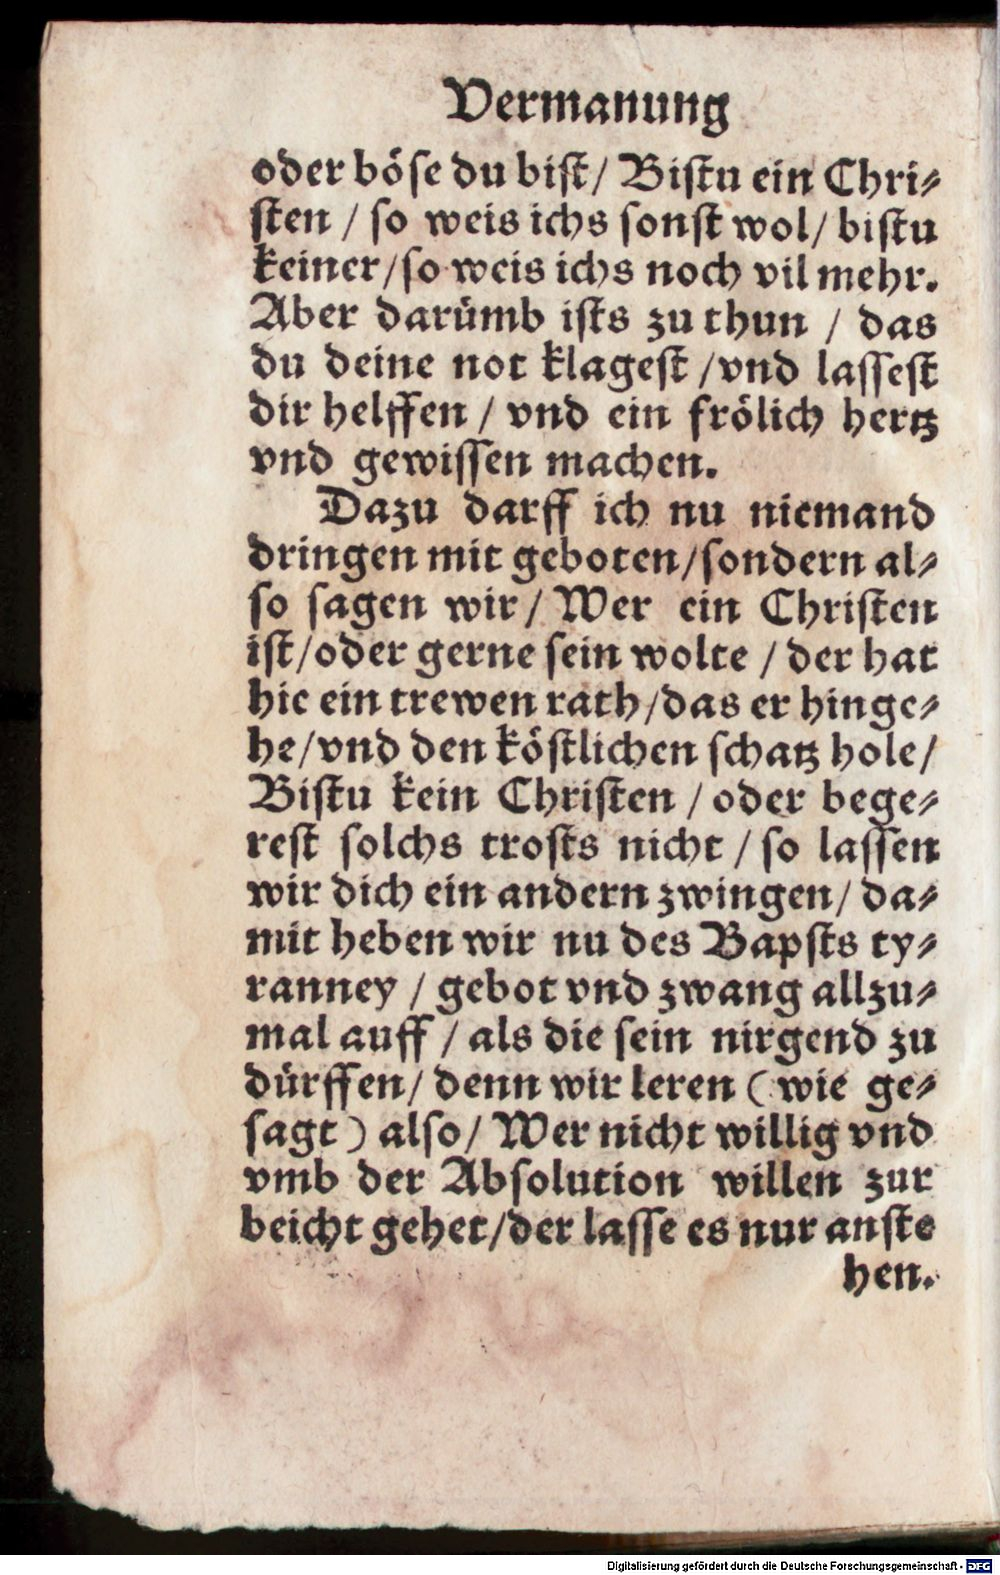 Vermanung
oder böse du bist/ Bistu ein Chri⸗
sten / so weis ichs sonst wol/ bistu
keiner/so weis ichs noch vil mehr.
Aber darümb ists zu thun / das
du deine not klagest /vnd lassest
dir helffen / vnd ein frölich hertz
vnd gewissen machen.
Dazu darff ich nu niemand
dringen mit geboten/sondern al⸗
so sagen wir/ Wer ein Christen
ist/oder gerne sein wolte / der hat
hie ein trewen rath/das er hinge⸗
he/vnd den köstlichen schatz hole/
Bistu kein Christen / oder bege⸗
rest solchs trosts nicht / so lassen
wir dich ein andern zwingen/ da⸗
mit heben wir nu des Bapsts ty⸗
ranney / gebot vnd zwang allzu⸗
mal auff / als die sein nirgend zu
dürffen/ denn wir leren ( wie ge⸗
sagt ) also/ Wer nicht willig vnd
vmb der Absolution willen zur
beicht gehet/der lasse es nur anste
hen.
Digitalisierung gefördert durch die Deutsche Forschungsgemeinschaft - DFG